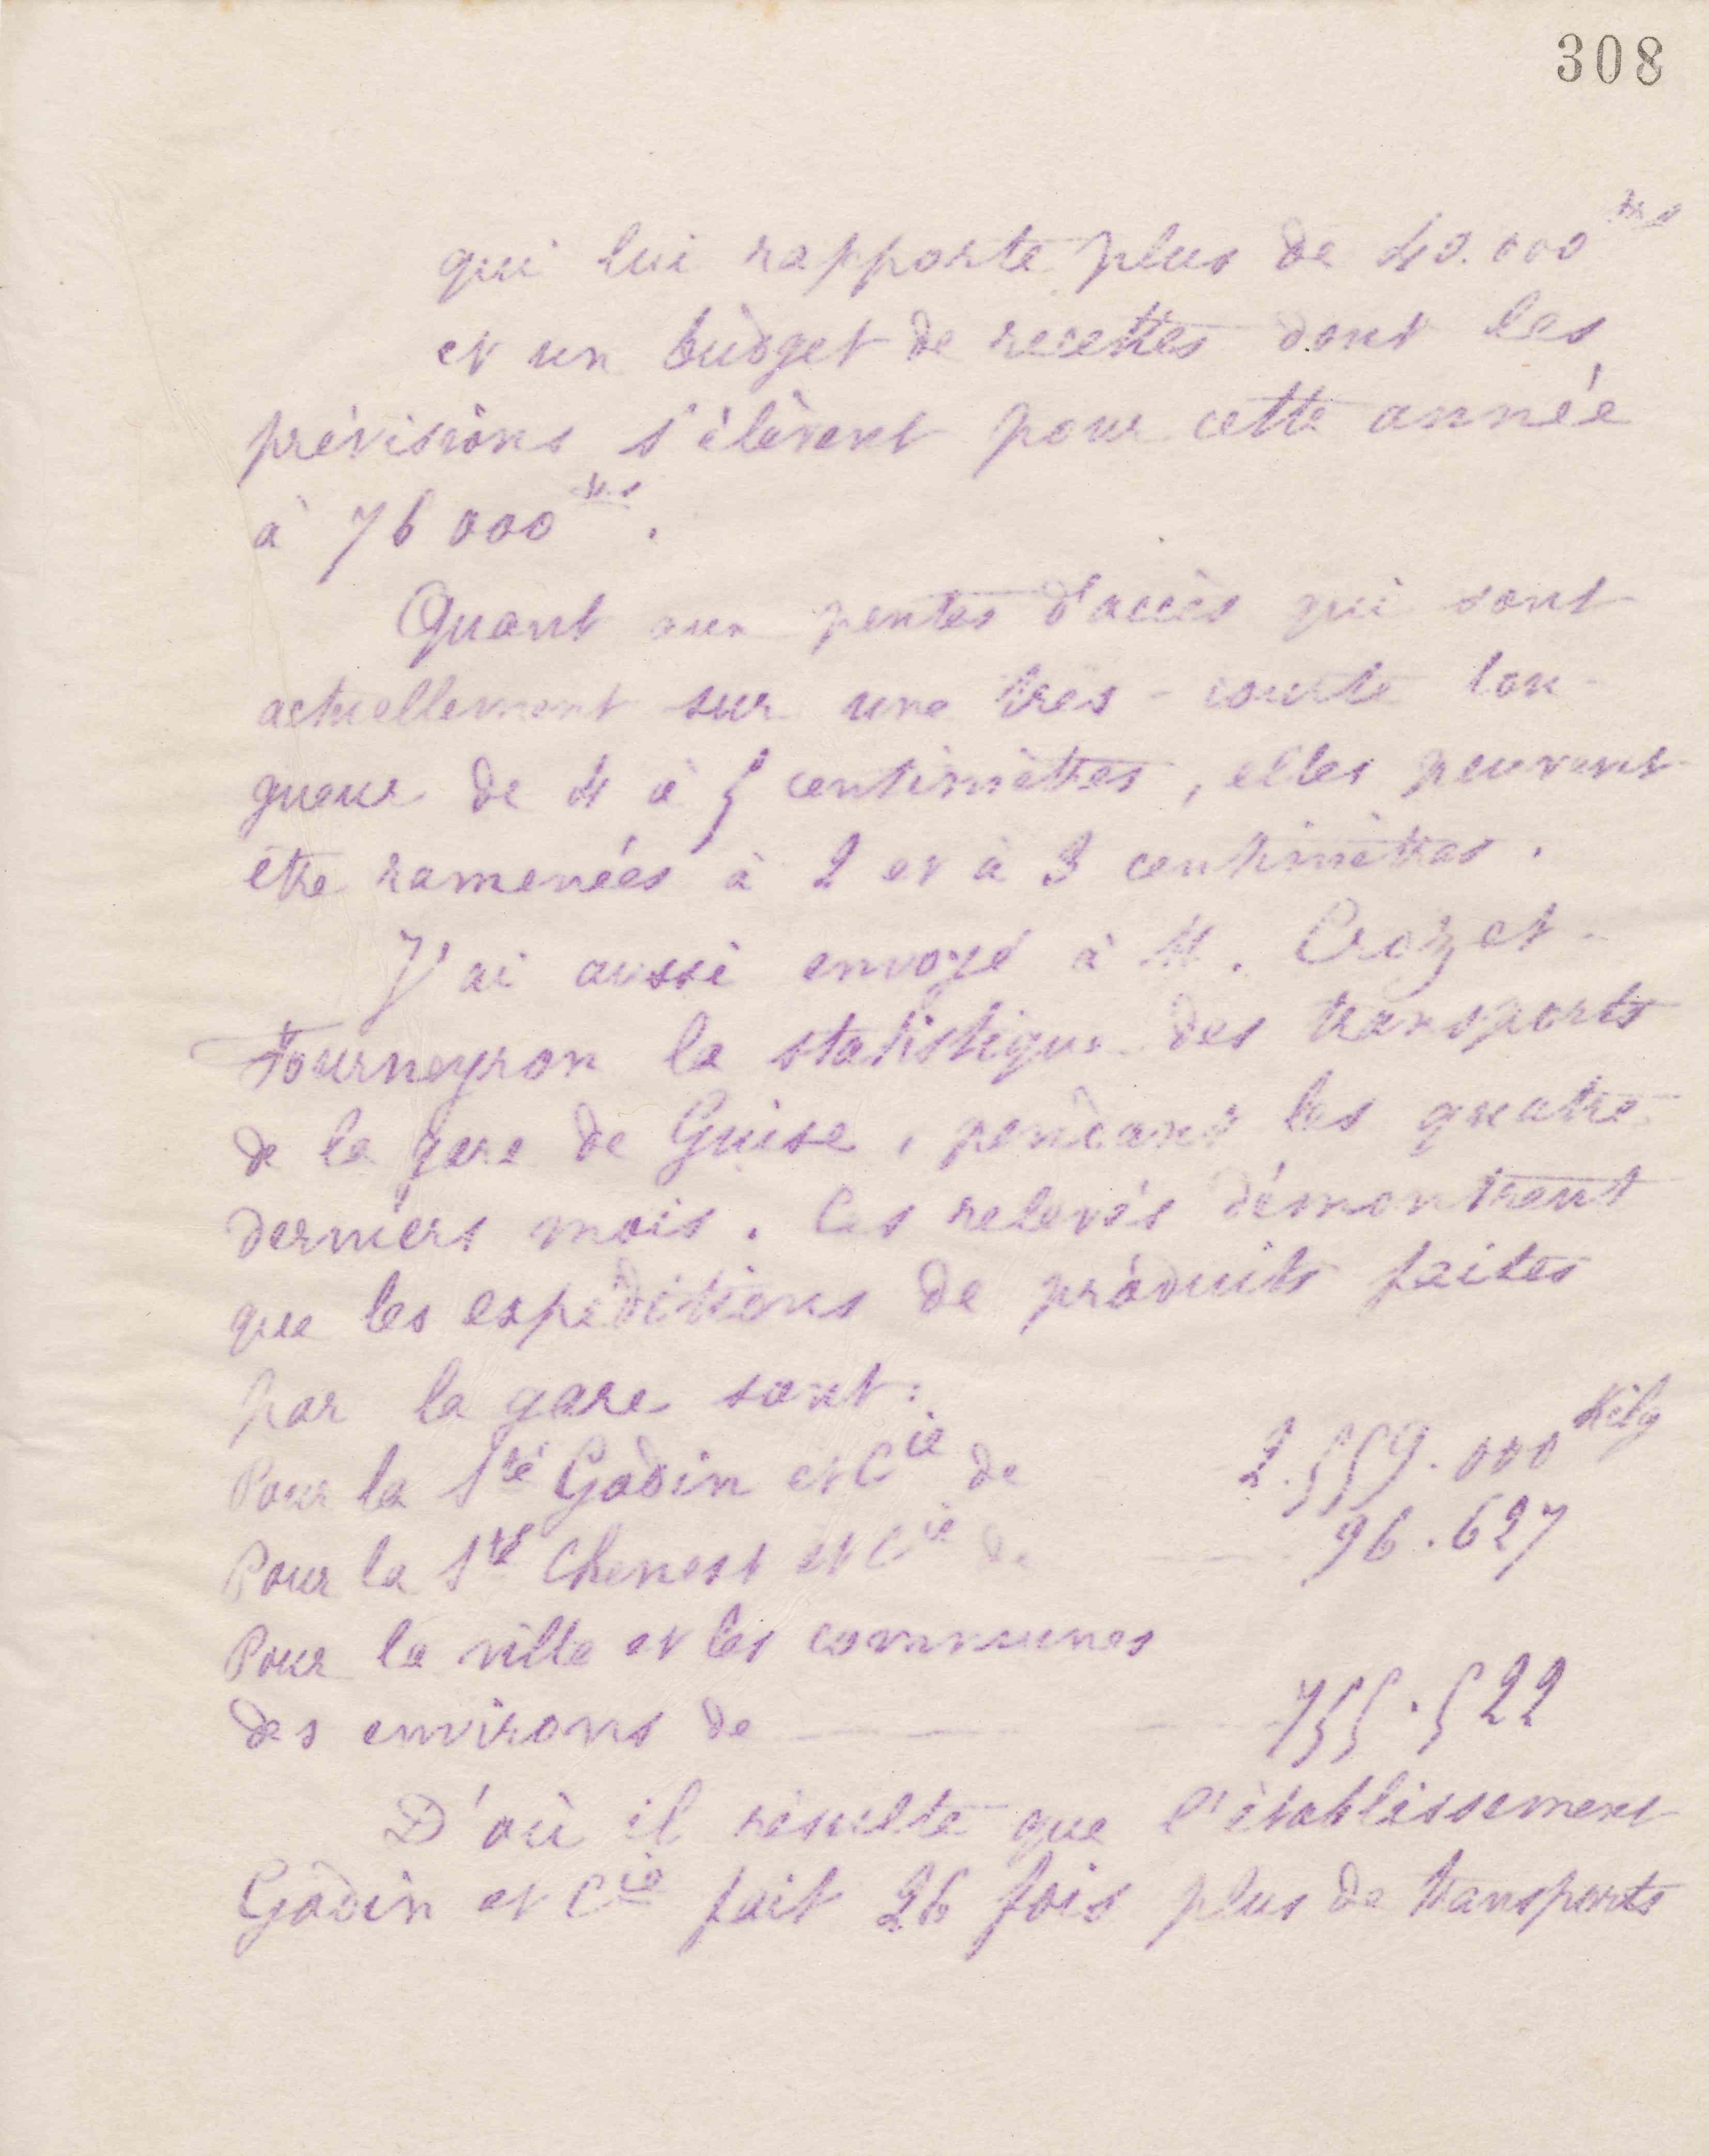 308
qui lui rapporte plus de 40.000 frs
et un budget de recettes dont les
prévisions s'élèvent pour cette année
à 76 000 frs.
Quant aux pentes d'accès qui sont
actuellement sur une très-courte lon-
gueur de 4 à 5 centimètres, elles peuvent
être ramenées à 2 et à 3 centimètres.
J'ai aussi envoyé à M. Crozet-
Fourneyron la statistique des transports
de la gare de Guise, pendant les quatre
derniers mois. Ces relevés démontrent
que les expéditions de produits faites
par la gare sont:
Pour la Sté Godin et Cie de 2.559.000 Kilg
Pour la Sté Chenest et Cie de 96.627
Pour la ville et les communes
des environs de 755.522
D'où il résulte que l'établissement
Godin et Cie fait 26 fois plus de transports